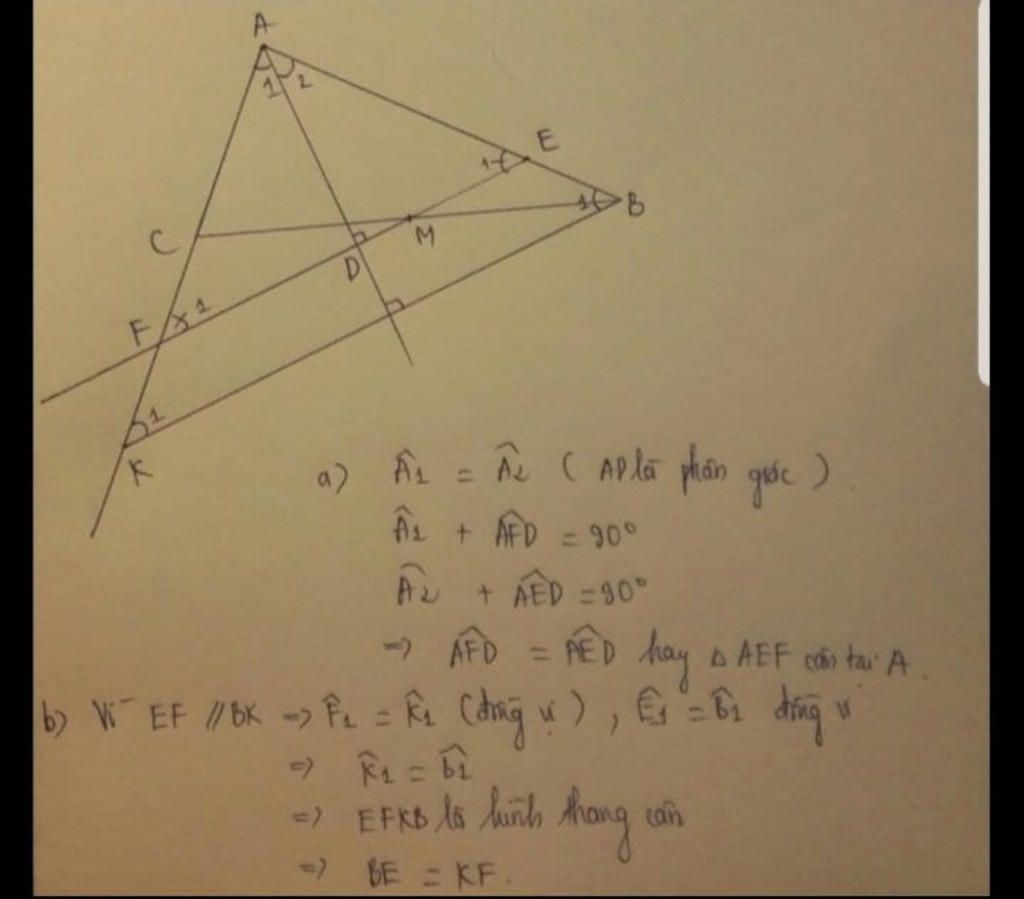 A
1 2
E
1
1 B
C
M
D
F 1
1
K
a) Â1 = Â2 ( AD là phân giác )
Â1 + AFD̂ = 90°
Â2 + AED̂ = 90°
=> AFD̂ = AED̂ hay Δ AEF cân tại A.
b) Vì EF // BK => F̂1 = K̂1 (đồng vị) , Ê1 = B̂1 đồng vị
=> K̂1 = B̂1
=> EFKB là hình thang cân
=> BE = KF.